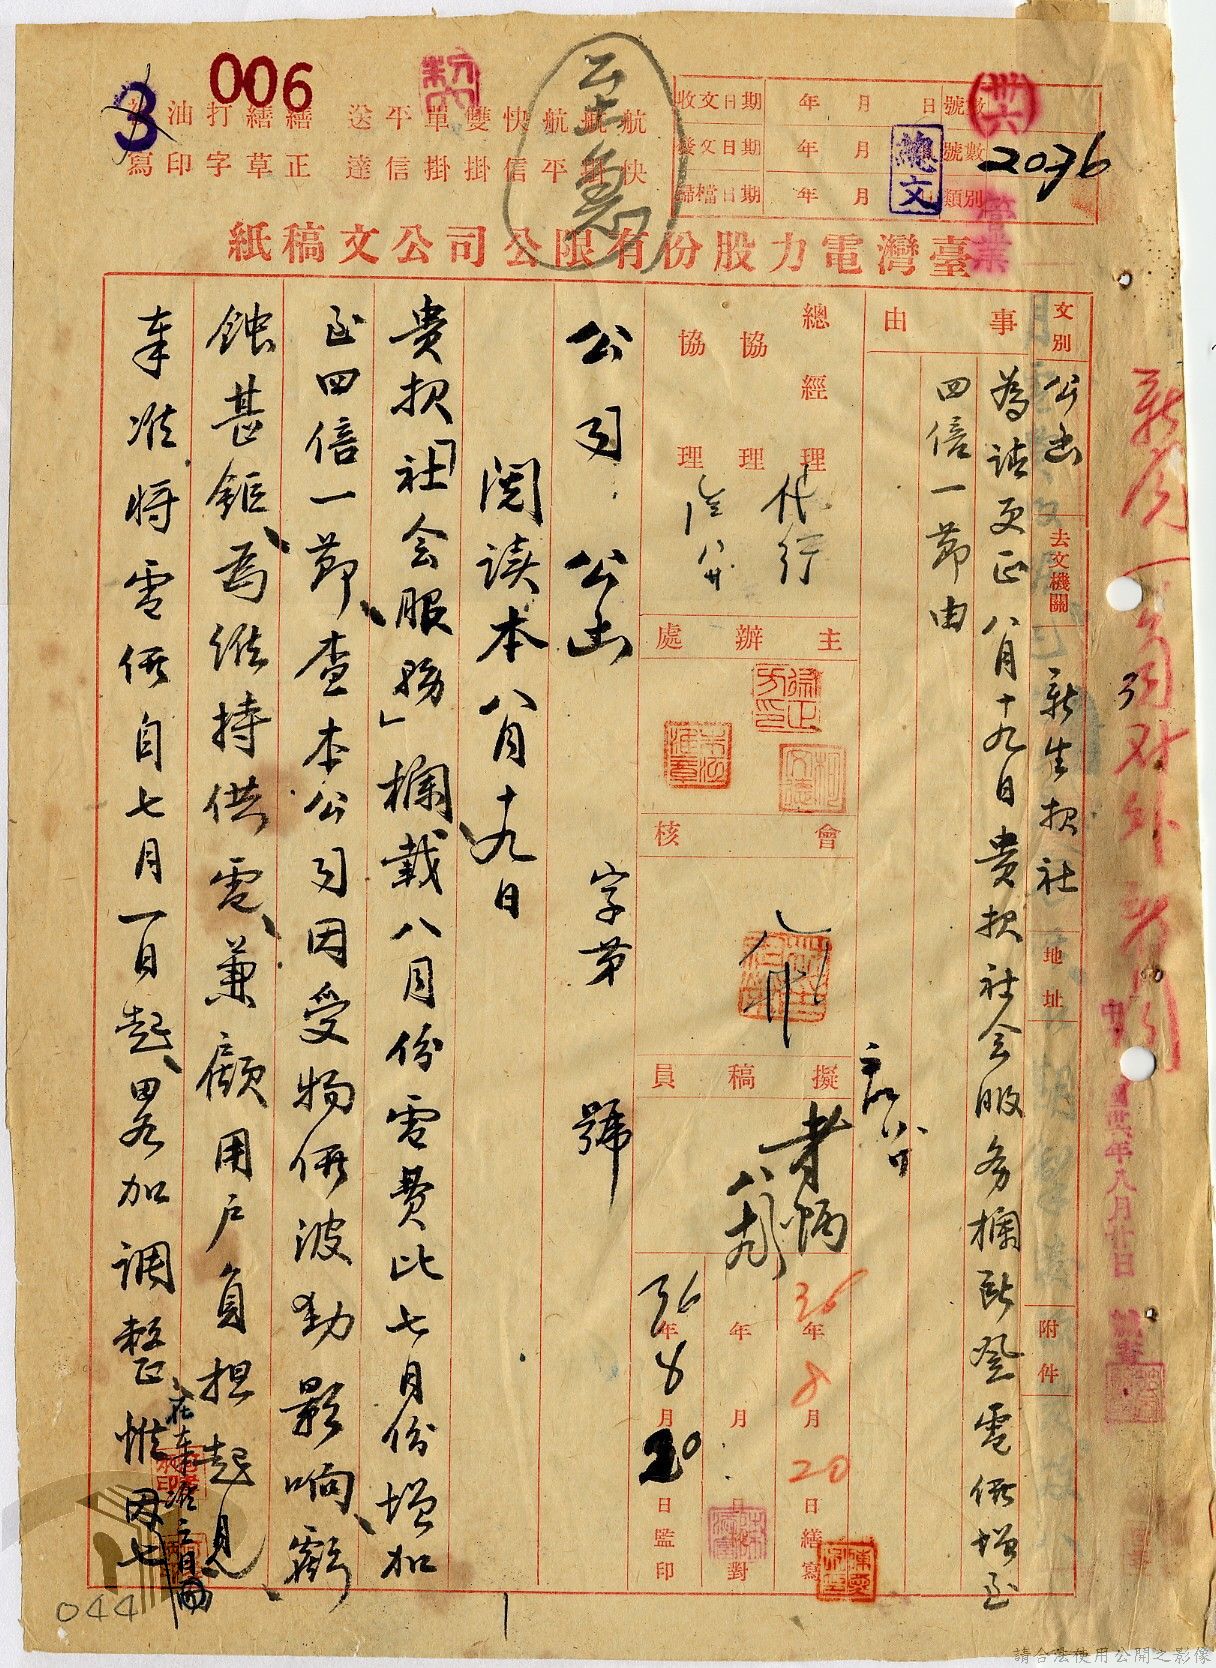 006
3
至急
航航航快雙單平送 繕繕打油
快掛平信掛掛信達 正草字印寫
收文日期 年 月 日 號數
發文日期 年 月 號數
歸檔日期 年 月 類別
卅六
2076
總文
營業
臺灣電力股份有限公司公文稿紙
文別 公函
去文機關 新生報社
地址
附件
事由
為請更正八月十九日貴報社会服务欄所登電價增至
四倍一節由
總經理
協理
協理
代行
主辦處
會核
擬稿員
36年8月20日繕寫
年 月 日 對
36年8月20日監印
公司 公函 字第 號
閱讀本八月十九日
貴報「社会服務」欄載八月份電費比七月份增加
至四倍一節、查本公司因受物價波動影响、虧
蝕甚鉅、為維持供電、兼顧用戶負担起見
奉准將電價自七月一日起、畧加調整、惟因七
在奉准之日
年八月廿日
044
請合法使用公開之影像